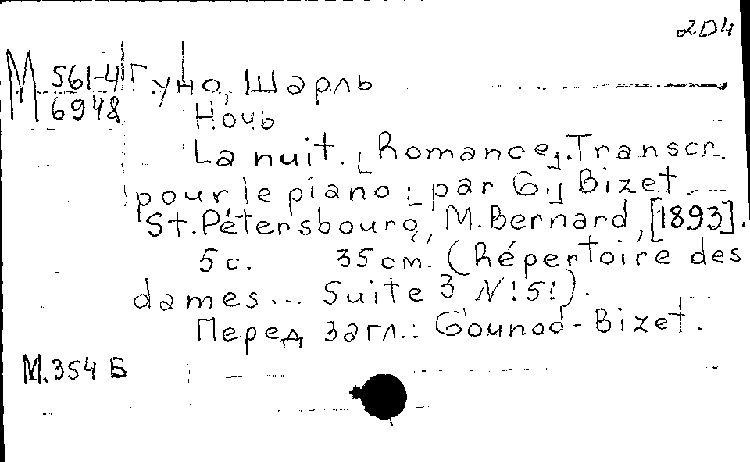 2D4
М 561-4 Гуно, Шарль
6948 Ночь
La nuit. [Romance]. Transcr.
pour le piano [par G.] Bizet.
St. Pétersbourg, M. Bernard, [1893].
5 с. 35 cm. (Répertoire des
dames... Suite 3 N!5!).
Перед загл.: Gounod-Bizet.
М.354 Б